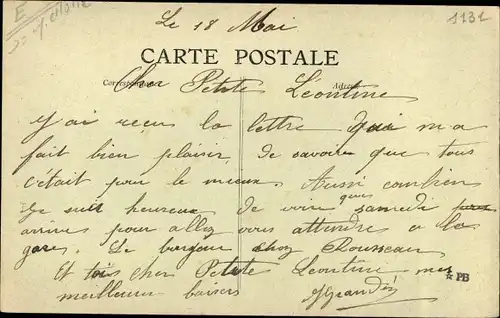 1131
Le 18 Mai
CARTE POSTALE
Correspondance Adresse
Cher Petite Léontine
J'ai reçu la lettre qui m'a
fait bien plaisir de savoir que tous
c'était pour le mieux. Aussi combien
je suis heureux de voir que samedi
arrive pour aller vous attendre a la
gare. Le bonjour chez Rousseau
Et toi cher Petite Léontine mes
meilleur baisers
PB